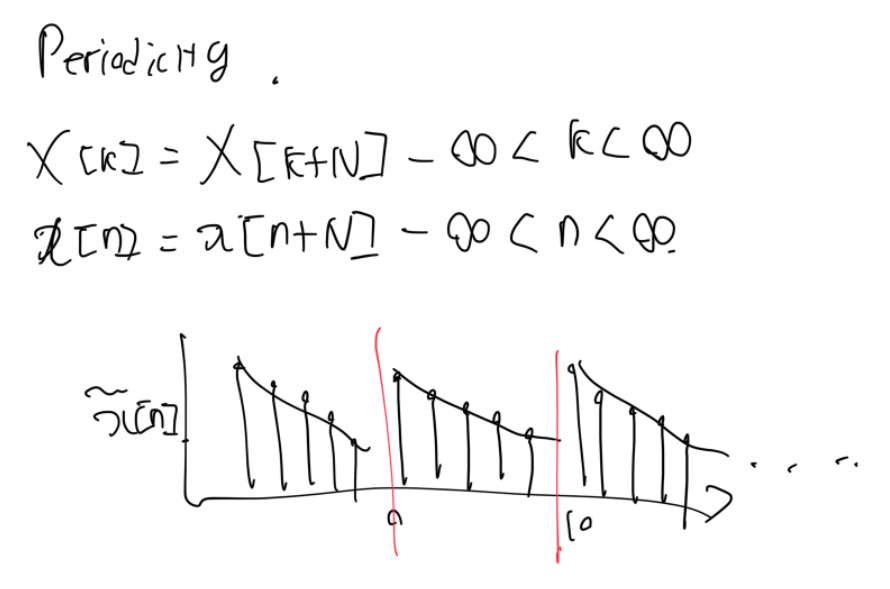 Periodicity.
X[k] = X[k+N] -∞ < k < ∞
x[n] = x[n+N] -∞ < n < ∞.
x̃[n]
0 10